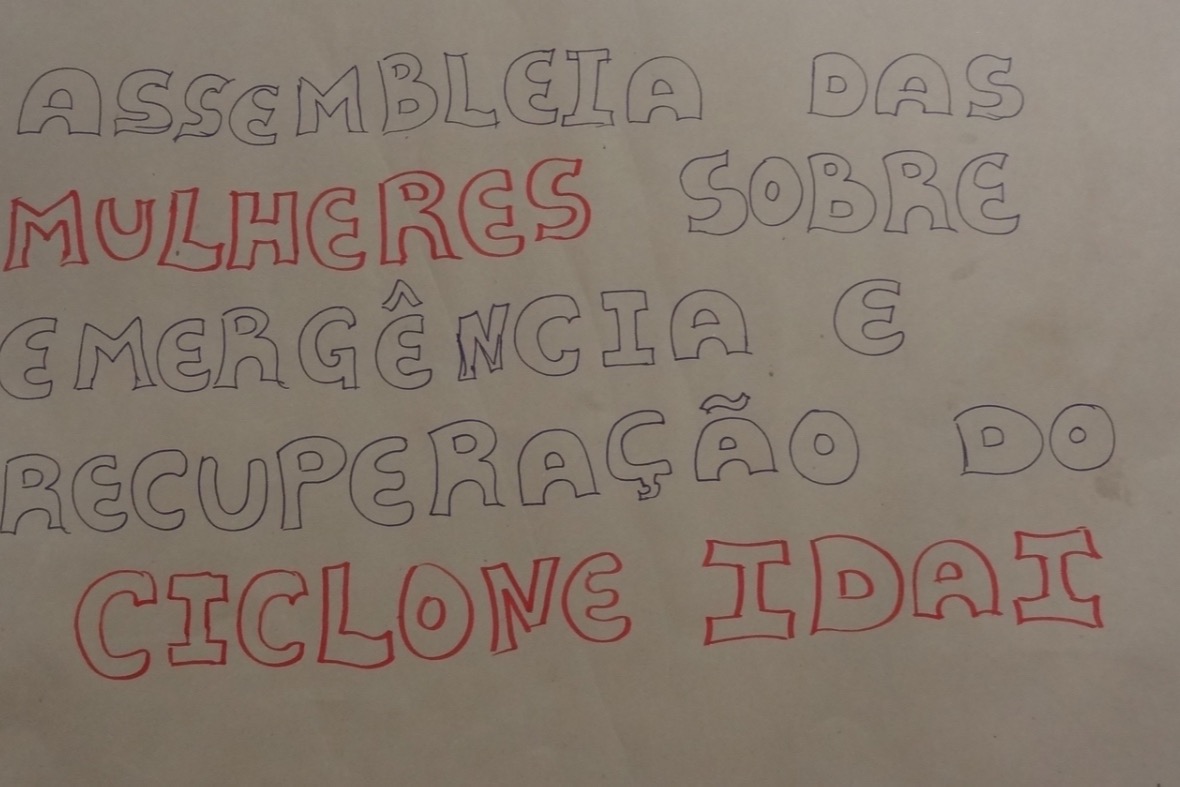 ASSEMBLEIA DAS
MULHERES SOBRE
EMERGÊNCIA E
RECUPERAÇÃO DO
CICLONE IDAI